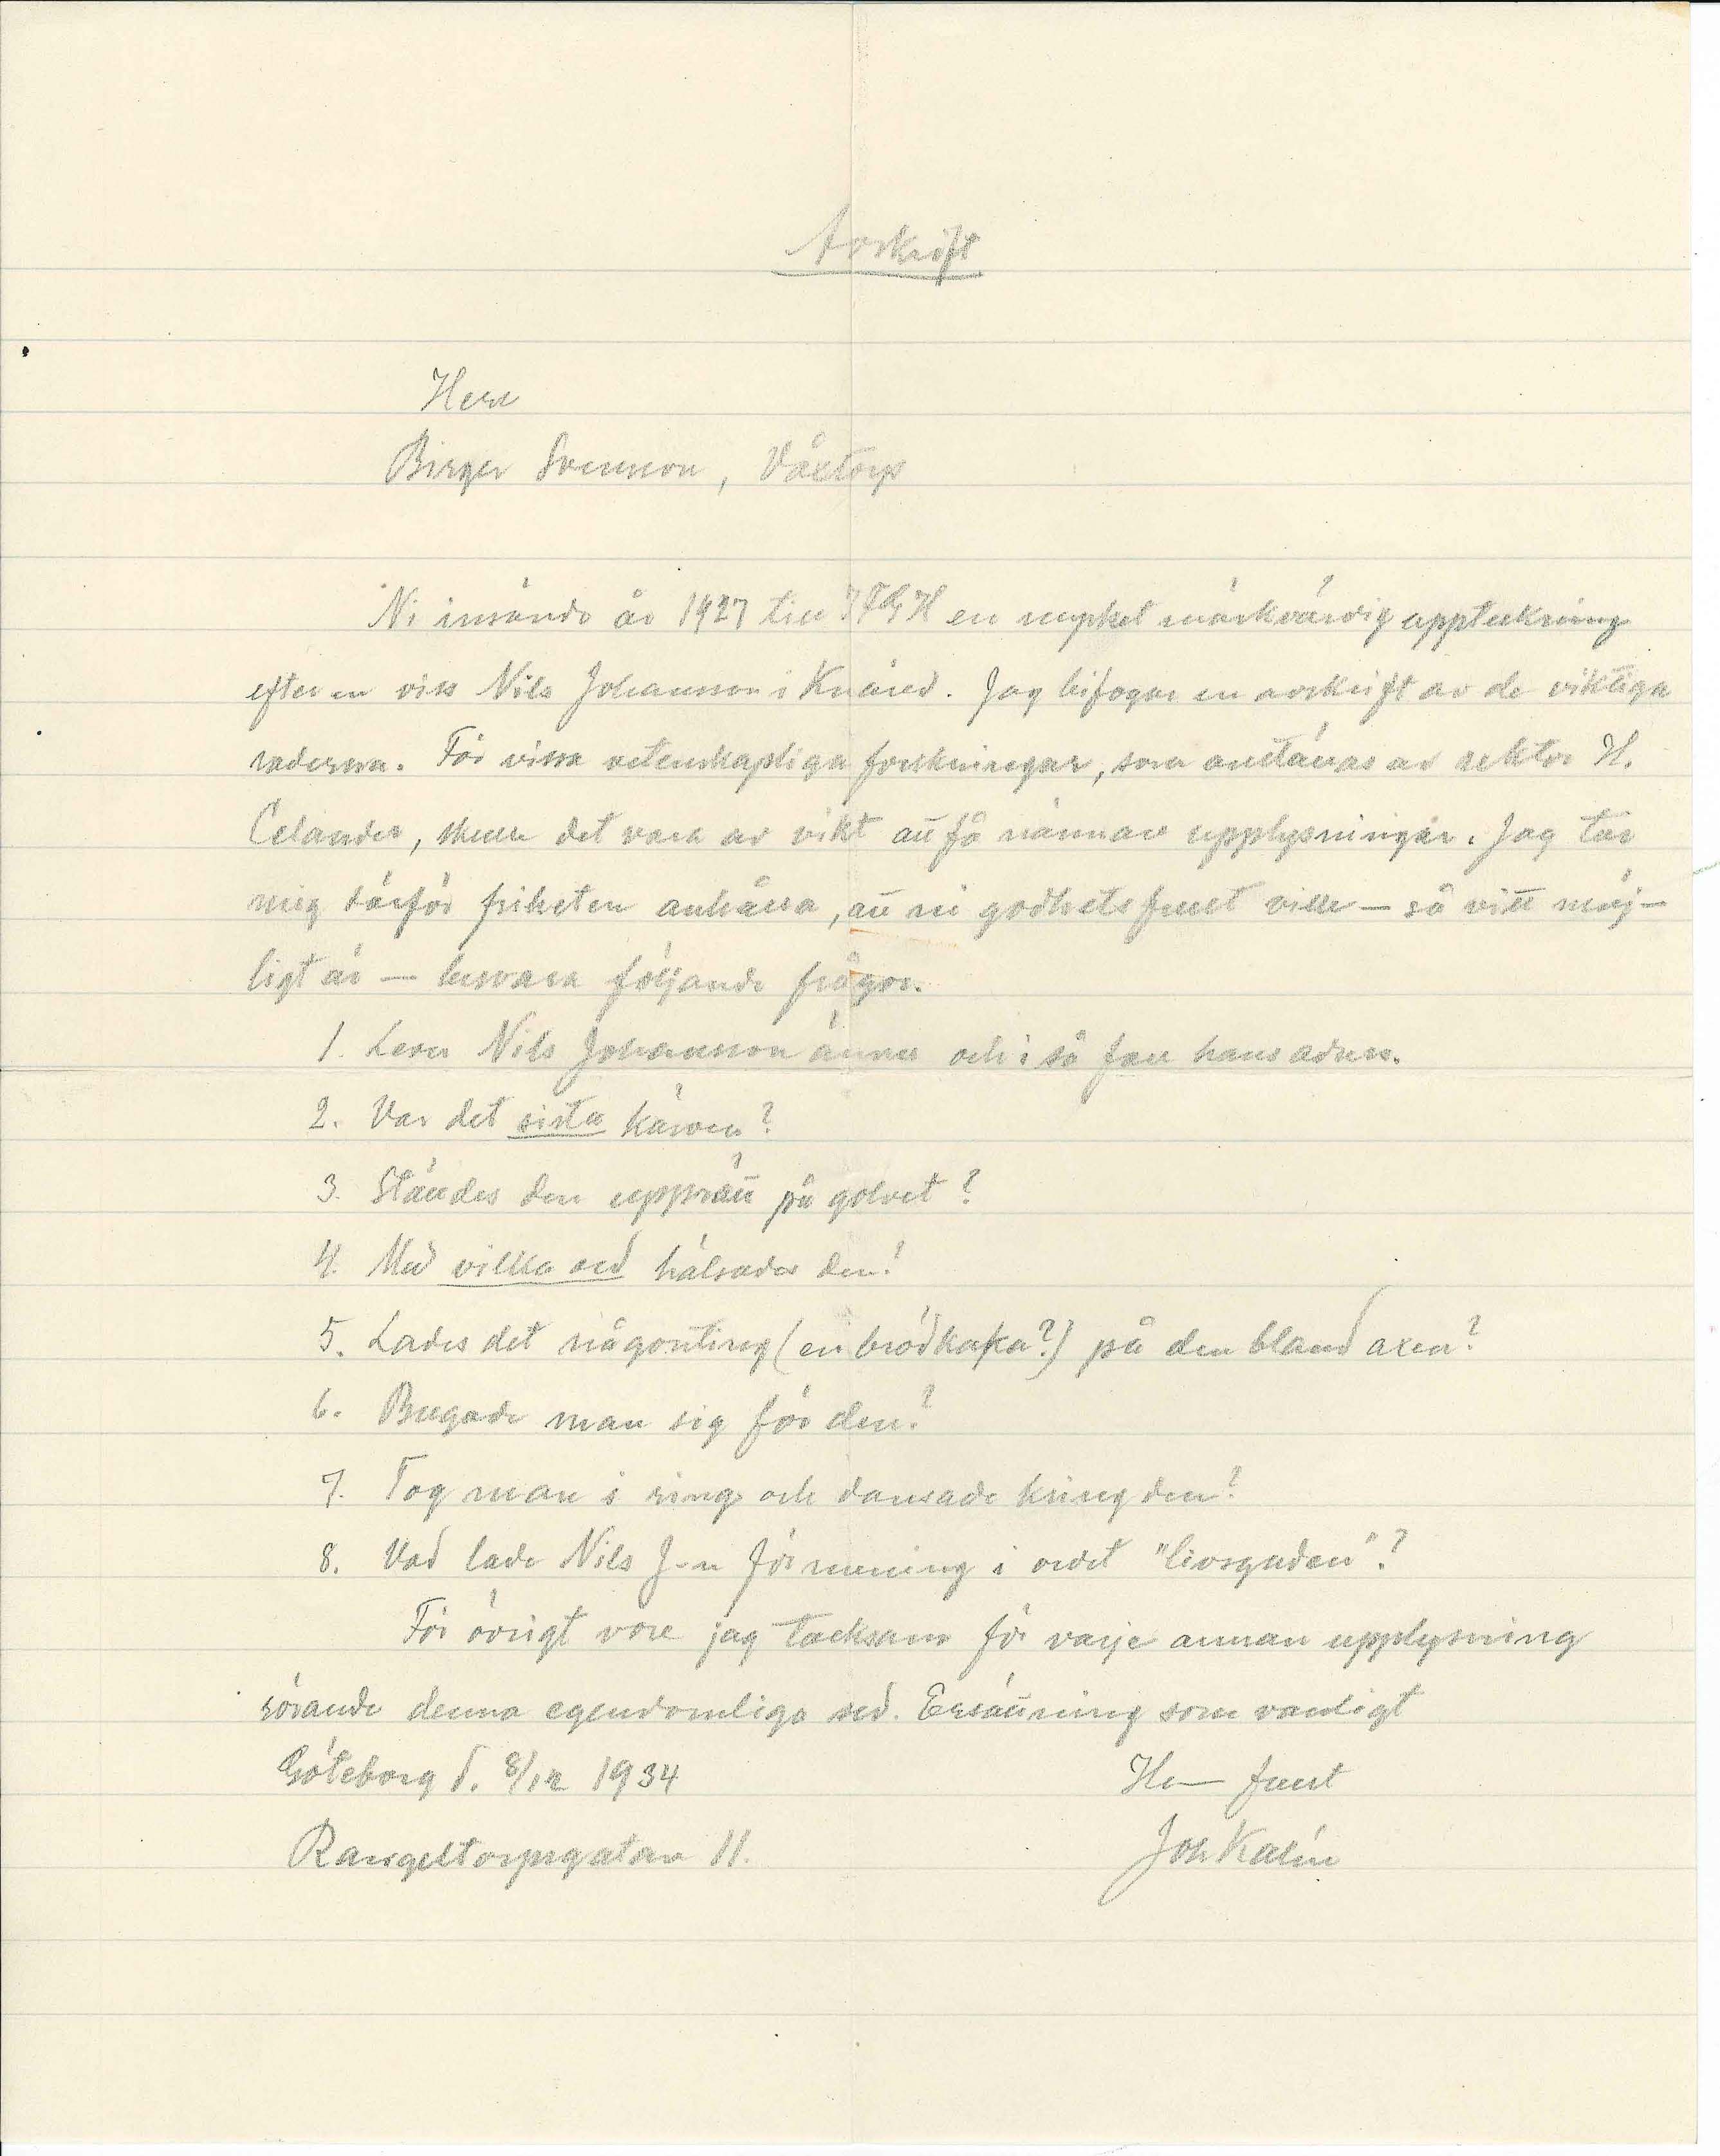 Avskrift
Herr
Birger Svensson, Våxtorp
Ni insände år 1927 till IFGH en mycket märkvärdig uppteckning
efter en viss Nils Johansson i Knäred. Jag bifogar en avskrift av de viktiga
raderna. För vissa vetenskapliga forskningar, som anställas av rektor H.
Celander, skulle det vara av vikt att få närmare upplysningar. Jag tar
mig därför friheten anhålla, att ni godhetsfullt ville — så vitt möj-
ligt är — besvara följande frågor.
1. Lever Nils Johansson ännu och i så fall hans adress.
2. Var det sista kärven?
3. Ställdes den upprätt på golvet?
4. Med vilka ord hälsades den?
5. Lades det någonting (en brödkaka?) på den bland axen?
6. Bugade man sig för den?
7. Tog man i ring och dansade kring den?
8. Vad lade Nils J-n för mening i ordet "livsguden"?
För övrigt vore jag tacksam för varje annan upplysning
rörande denna egendomliga sed. Ersättning som vanligt
Göteborg d. 8/12 1934
H— fullt
Rangeltorpsgatan 11.
Joh Kalén